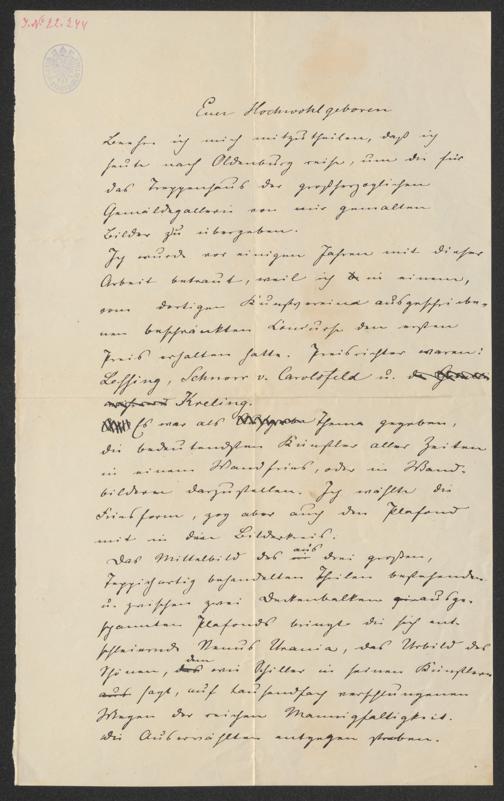 J.№ 22.244
Euer Hochwohlgeboren
Beehre ich mich mitzutheilen, daß ich
heute nach Oldenburg reise, um die für
das Treppenhaus der großherzoglichen
Gemäldegallerie von mir gemalten
Bilder zu übergeben.
Ich wurde vor einigen Jahren mit dieser
Arbeit betraut, weil ich in einem,
vom dortigen Kunstvereine ausgeschriebe-
nen beschränkten Concurse den ersten
Preis erhalten hatte. Preisrichter waren:
Lessing, Schnorr v. Carolsfeld u.
Kreling.
Es war als Thema gegeben,
die bedeutendsten Künstler aller Zeiten
in einem Wandfries, oder in Wand-
bildern darzustellen. Ich wählte die
Friesform, zog aber auch den Plafond
mit in den Bilderkreis.
Das Mittelbild des aus drei großen,
teppichartig behandelten Theilen bestehenden
u. zwischen zwei Deckenbalken ausge-
spannten Plafonds bringt die sich ent-
schleiernde Venus Urania, das Urbild des
Schönen, dem wie Schiller in seinen Künstlern
sagt, auf tausendfach verschlungenen
Wegen der reichen Mannigfaltigkeit.
die Auserwählten entgegen streben.